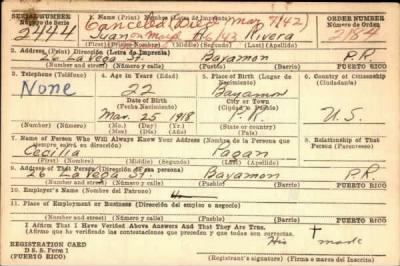 SERIAL NUMBER
Número de Serie
2444
1. Name (Print) Nombre (Letra de Imprenta)
Cancelled
ORDER NUMBER
Número de Orden
2184
Juan Rivera
(First) (Primer Nombre) (Middle) (Segundo) (Last) (Apellido)
2. Address (Print) Dirección (Letra de Imprenta)
26 La Vega St. Bayamon P.R.
(Number and street) (Número y calle) (Town) (Pueblo) PUERTO RICO
3. Telephone (Teléfono)
None
(Number) (Número)
4. Age in Years (Edad)
22
Date of Birth
(Fecha Nacimiento)
Mar. 25 1918
(Mo.) (Day) (Yr.)
(Mes) (Día) (Año)
5. Place of Birth (Lugar de Nacimiento)
Bayamon
City or Town
(Ciudad o Pueblo)
P.R.
State or county
(Estado o país)
6. Country of Citizenship
(Ciudadanía)
U.S.
7. Name of Person Who Will Always Know Your Address (Nombre de la Persona que siempre sabrá su dirección)
Cecilia Pagan
(First) (Nombre) (Middle) (Segundo) (Last) (Apellido)
8. Relationship of That Person (Parentesco)
9. Address of That Person (Dirección de esa persona)
26 La Vega St. Bayamon P.R.
(Number and street) (Número y calle) (Town) (Pueblo) PUERTO RICO
10. Employer's Name (Nombre del Patrono)
11. Place of Employment or Business (Dirección del empleo o negocio)
(Number and street) (Número y calle) (Town) (Pueblo) PUERTO RICO
I Affirm That I Have Verified Above Answers And That They Are True.
(Afirmo que he verificado las contestaciones que preceden y que todas son correctas.)
REGISTRATION CARD
D. S. S. Form 1
(PUERTO RICO)
His mark
(Registrant's signature) (Firma o marca del Inscrito)